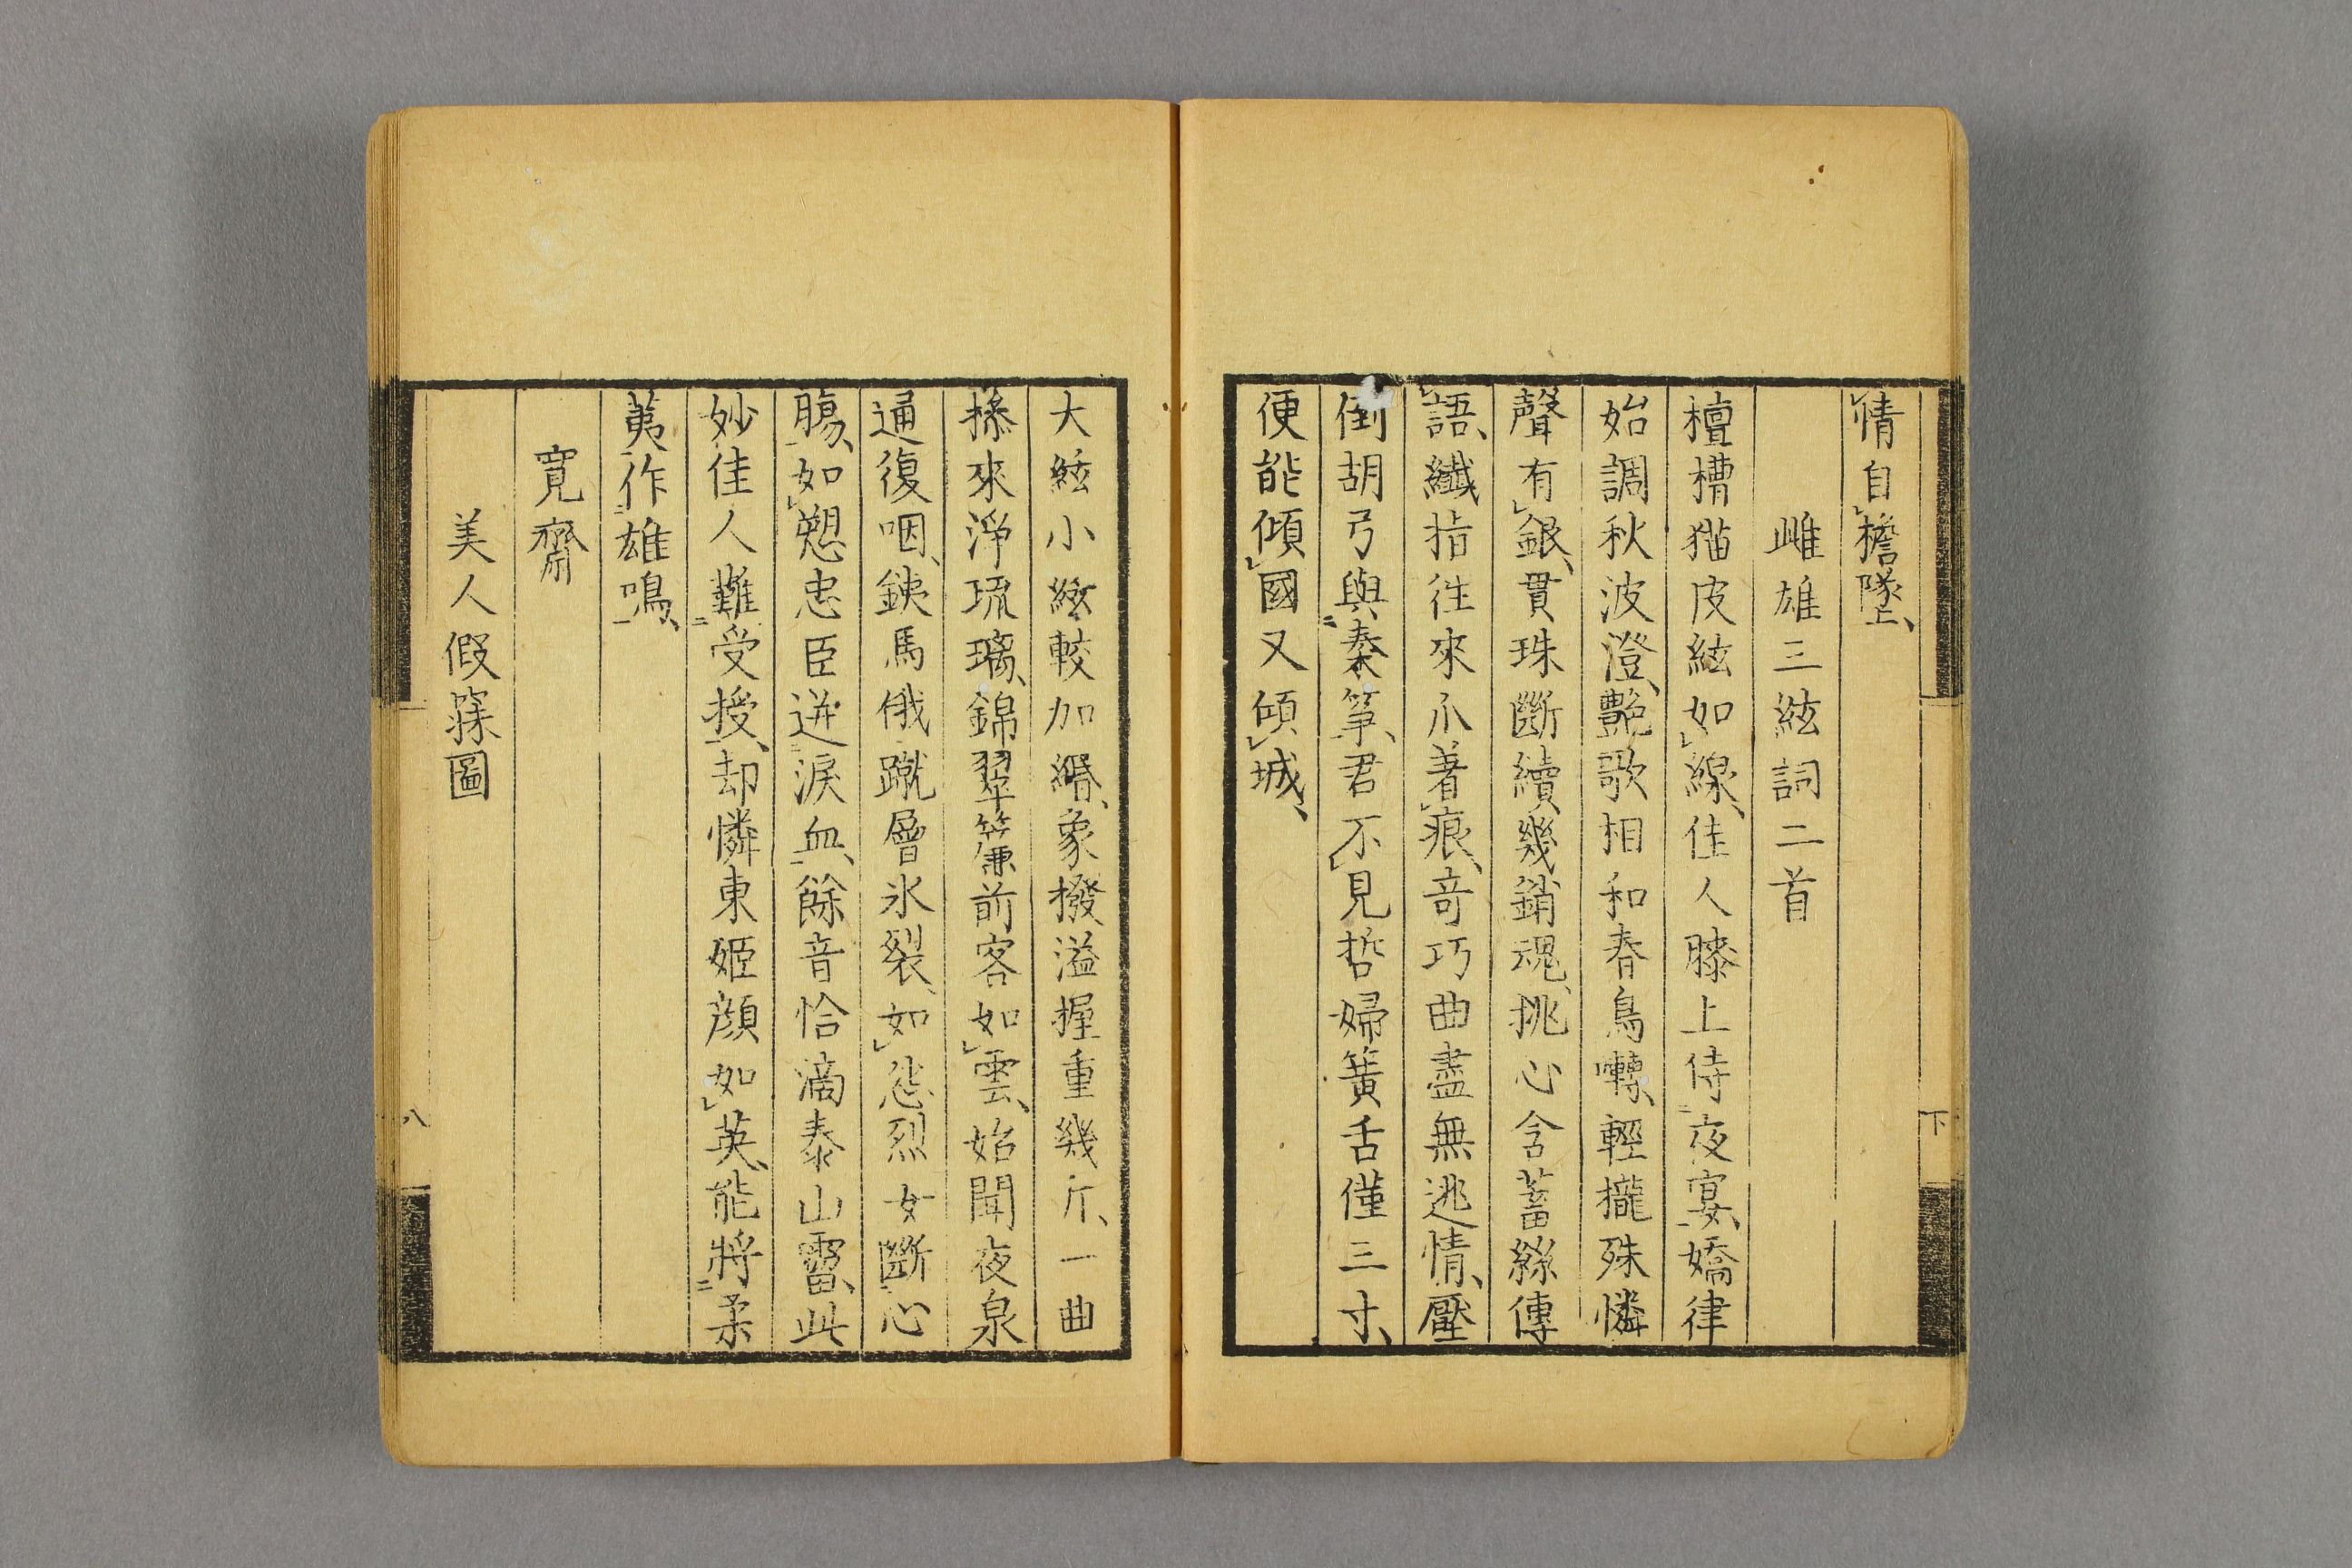 情自檐墜、
雌雄三絃詞二首
檀槽猫皮絃如線、佳人膝上侍夜宴、嬌律
始調秋波澄、艷歌相和春鳥囀、輕攏殊憐
聲有銀、貫珠斷續幾銷魂、挑心含蓄絲傳
語、纖指往來爪著痕、奇巧曲盡無逃情、壓
倒胡弓與秦筝、君不見哲婦簧舌僅三寸、
便能傾國又傾城、
下
大絃小絃較加緡、象撥溢握重幾斤、一曲
搽來淨琉璃、錦翠簾前客如雲、始聞夜泉
通復咽、鉄馬俄蹴層氷裂、如怨烈女斷心
腸、如愬忠臣迸淚血、餘音恰滴泰山霤、此
妙佳人難受授、却憐東姬顏如英、能將柔
荑作雄鳴、
寛齋
美人假寐圖
八